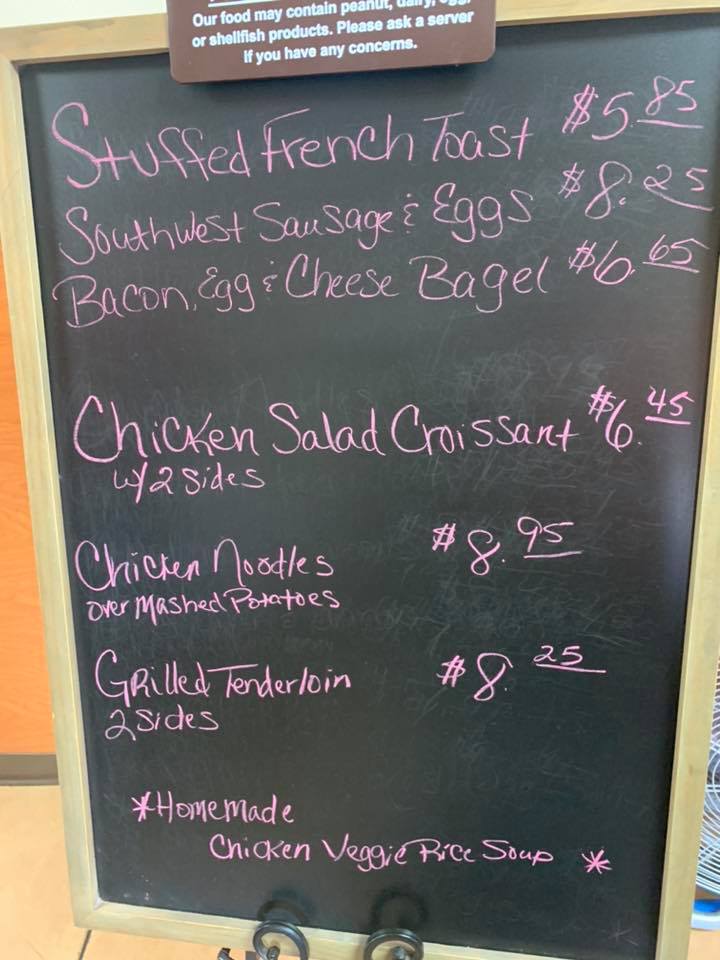 Our food may contain peanut, dairy, egg,
or shellfish products. Please ask a server
if you have any concerns.
Stuffed French Toast $5.85
Southwest Sausage & Eggs $8.25
Bacon, Egg & Cheese Bagel $6.65
Chicken Salad Croissant $6.45
w/ 2 sides
Chicken Noodles $8.95
over Mashed Potatoes
Grilled Tenderloin $8.25
2 Sides
*Homemade
Chicken Veggie Rice Soup *